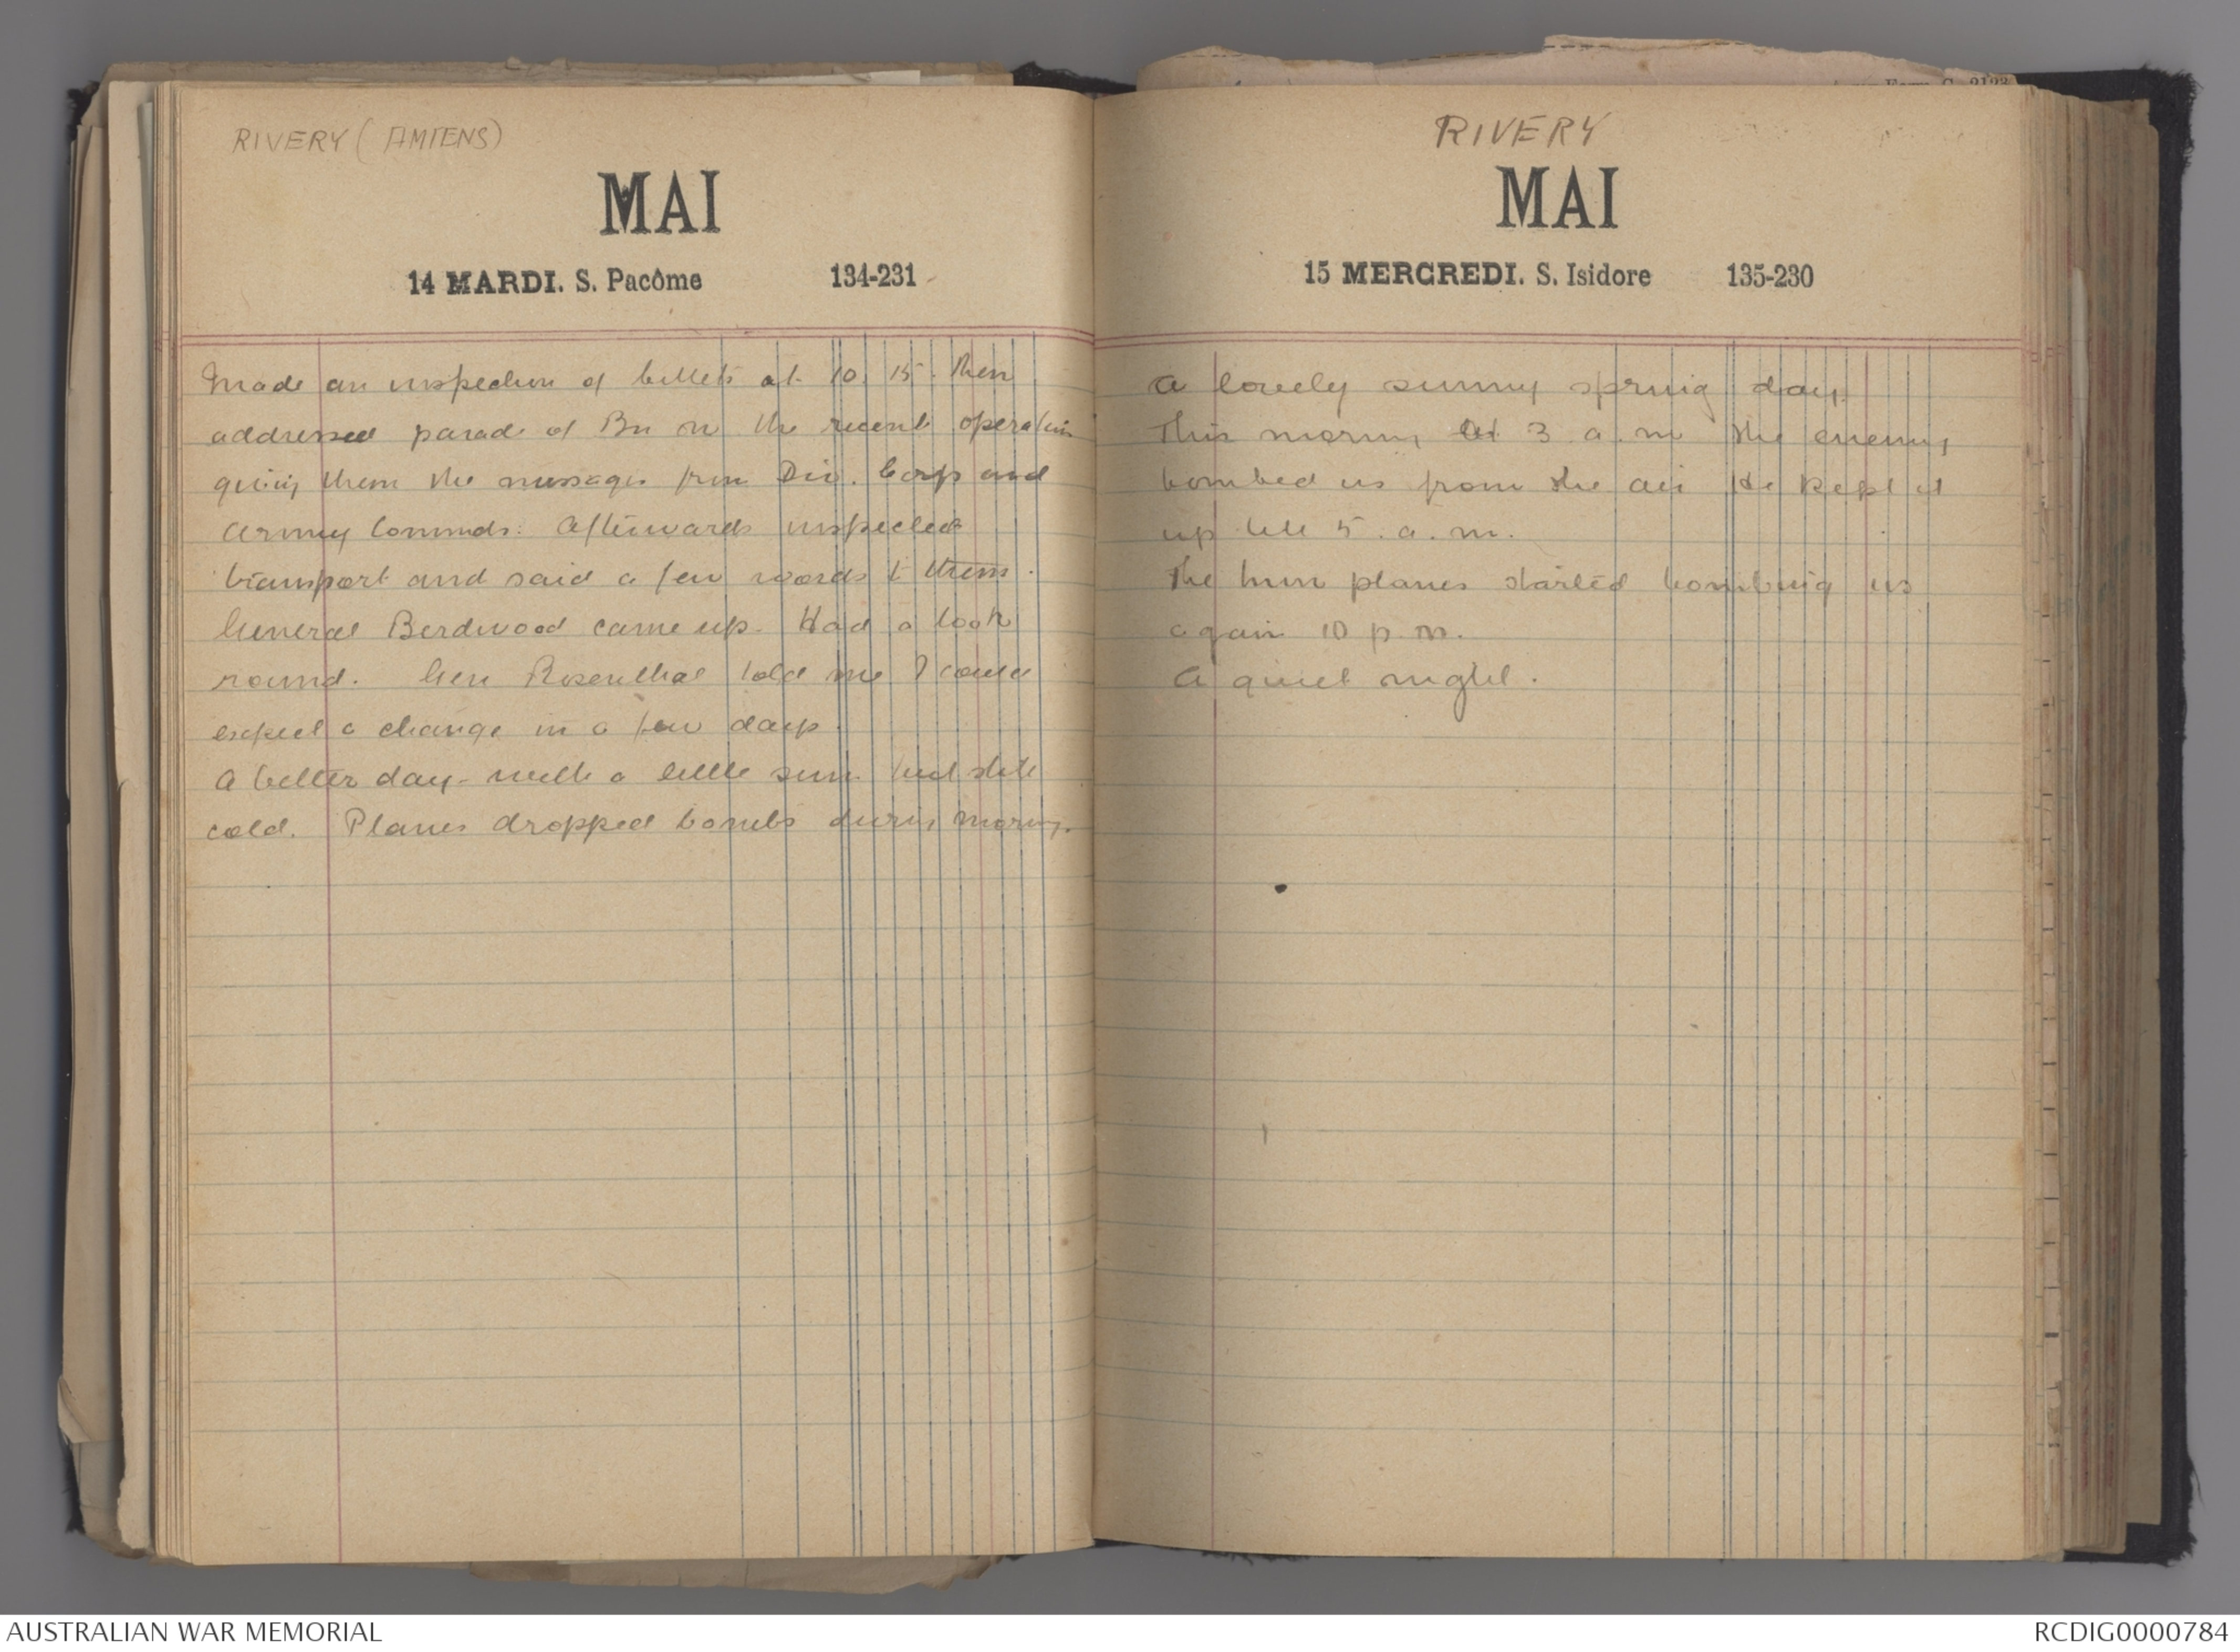 RIVERY (AMIENS)
MAI
14 MARDI. S. Pacôme 134-231
Made an inspection of billets at 10.15. Then
addressed parade of Bn on the recent operations
giving them the messages from Div. Corp and
Army Commds. Afterwards inspected
transport and said a few words to them.
General Birdwood came up. Had a look
round. Gen Rosenthal told me I could
expect a change in a few days.
A better day - with a little sun but still
cold. Planes dropped bombs during morning.
Form C. 2123
RIVERY
MAI
15 MERCREDI. S. Isidore 135-230
A lovely sunny spring day.
This morning at 3 a.m the enemy
bombed us from the air He kept it
up till 5. a.m.
The hun planes started bombing us
again 10 p.m.
A quiet night.
AUSTRALIAN WAR MEMORIAL
RCDIG0000784